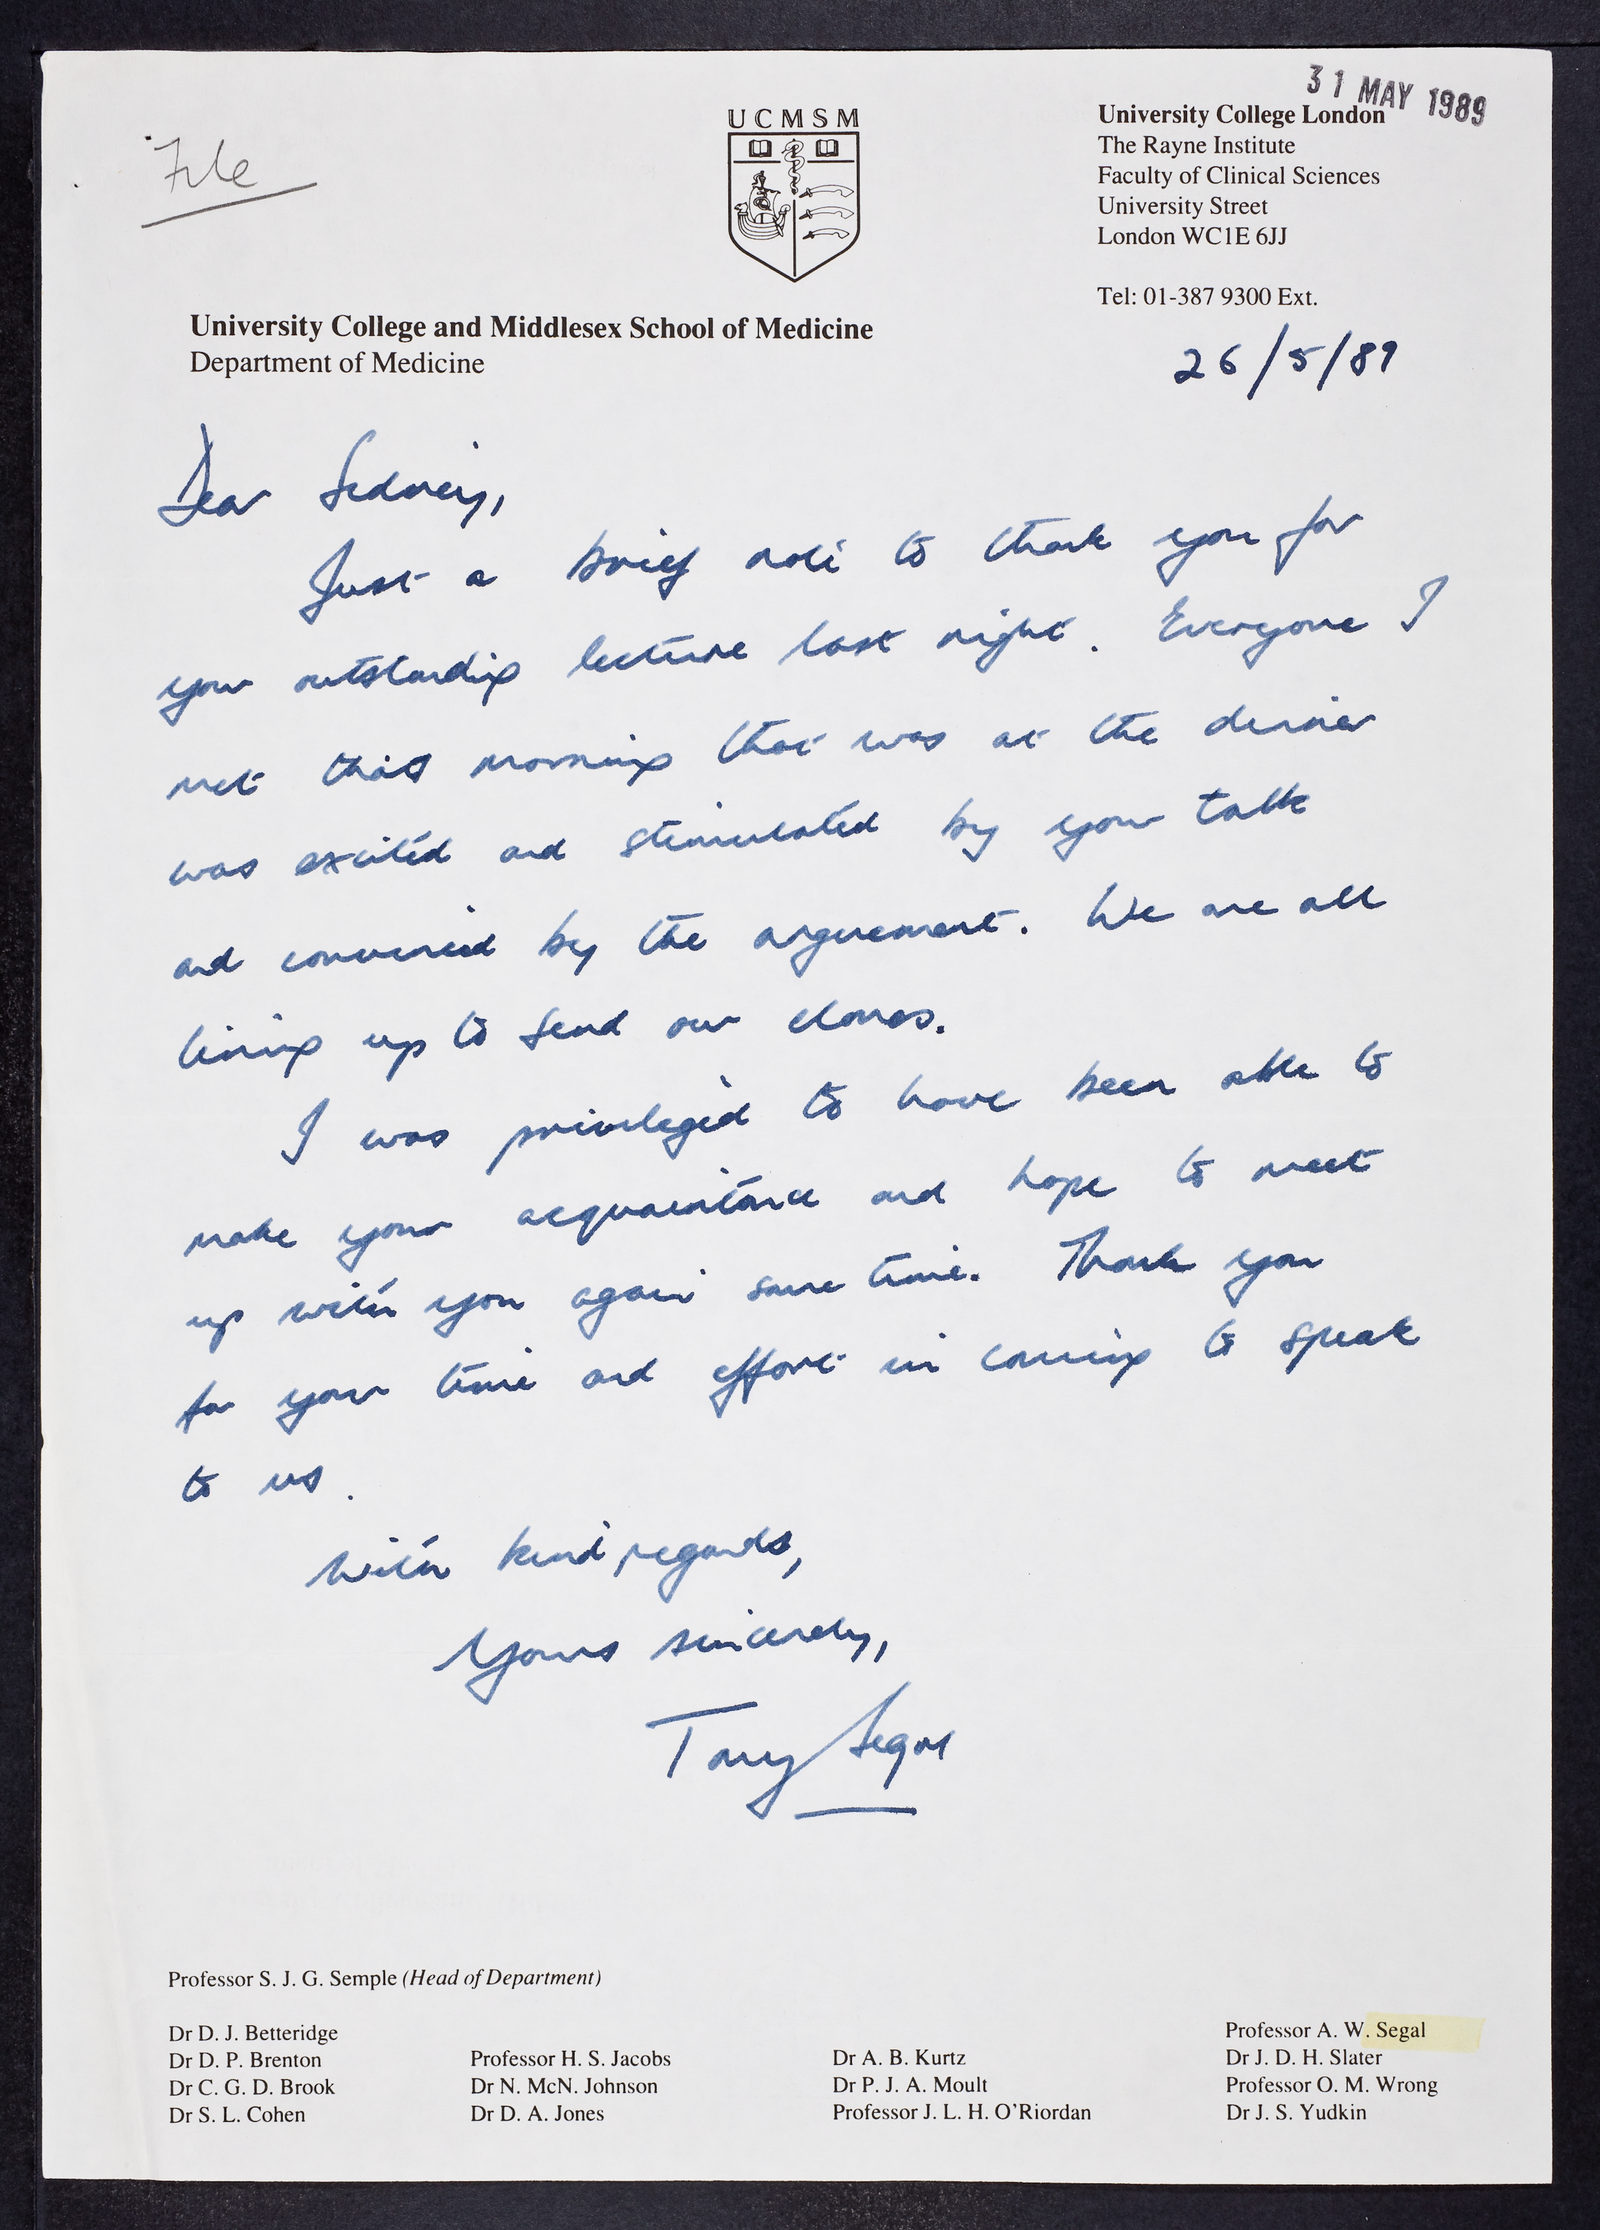 31 MAY 1989
File
UCMSM
University College London
The Rayne Institute
Faculty of Clinical Sciences
University Street
London WC1E 6JJ
Tel: 01-387 9300 Ext.
University College and Middlesex School of Medicine
Department of Medicine
26/5/89
Dear Sedney,
Just a brief note to thank you for
your outstanding lecture last night. Everyone I
met this morning that was at the dinner
was excited and stimulated by your talk
and convinced by the arguement. We are all
lining up to send our clones.
I was privileged to have been able to
make your acquaintance and hope to meet
up with you again some time. Thank you
for your time and effort in coming to speak
to us.
With kind regards,
Yours sincerely,
Tony Segal
Professor S. J. G. Semple (Head of Department)
Dr D. J. Betteridge
Dr D. P. Brenton
Dr C. G. D. Brook
Dr S. L. Cohen
Professor H. S. Jacobs
Dr N. McN. Johnson
Dr D. A. Jones
Dr A. B. Kurtz
Dr P. J. A. Moult
Professor J. L. H. O'Riordan
Professor A. W. Segal
Dr J. D. H. Slater
Professor O. M. Wrong
Dr J. S. Yudkin